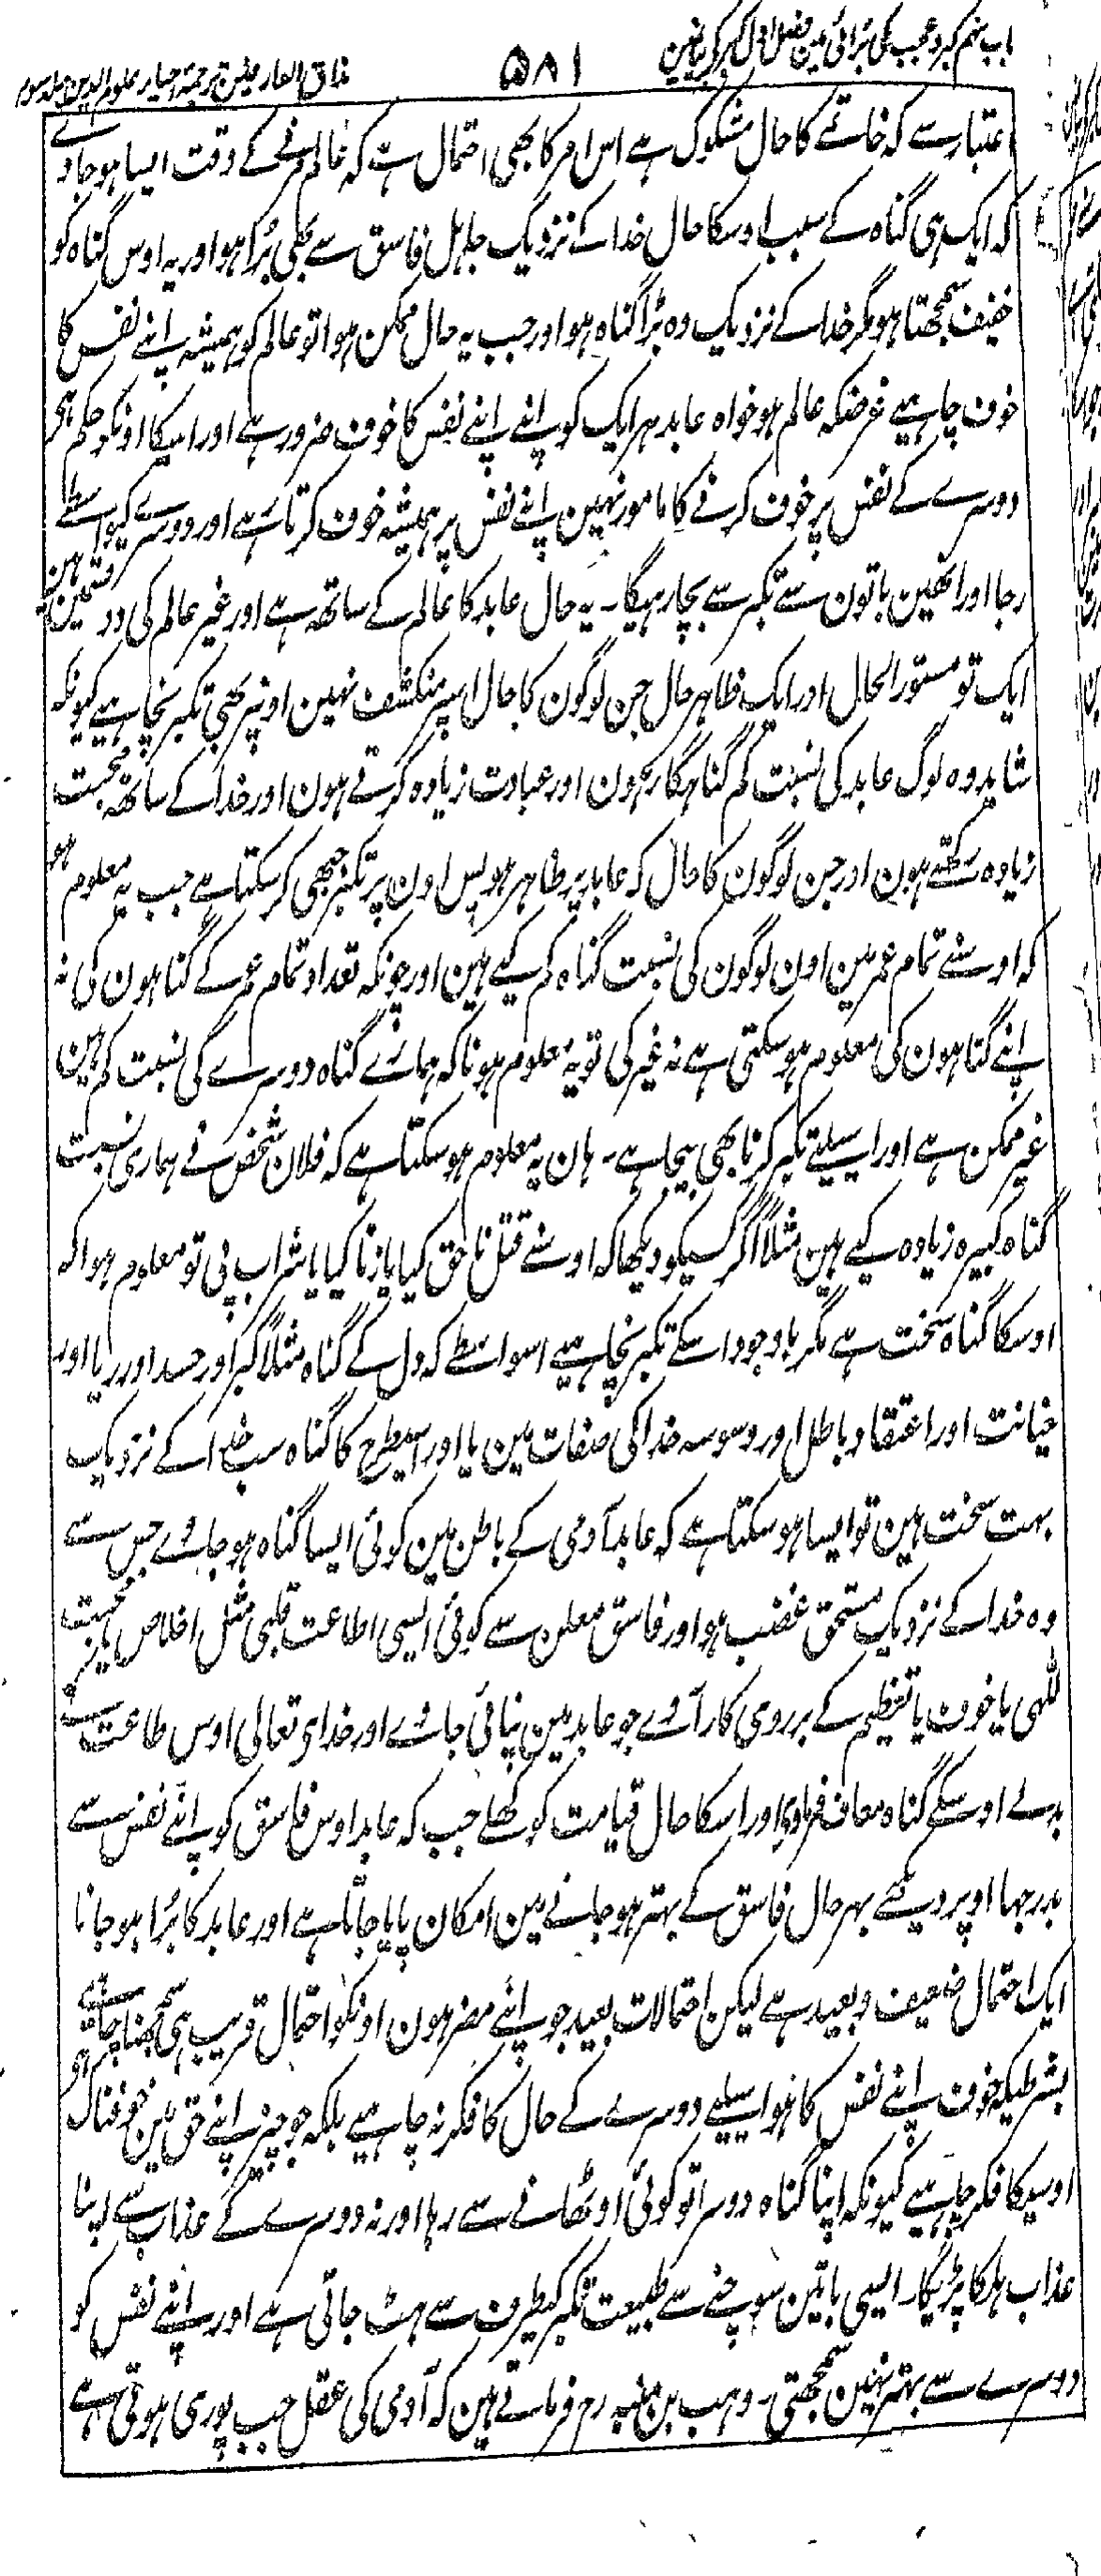 باب نہم کبر و عجب کی برائی مین فصل اول کبر کے بیان مین
۵۸۱
مذاق العارفین ترجمۂ احیاء علوم الدین جلد سوم
اعتبار سے کہ خاتمے کا حال مشکوک ہے اس امر کا بھی احتمال ہے کہ عالم مرنے کے وقت ایسا ہو جاوے
کہ ایک ہی گناہ کے سبب اوسکا حال خدا کے نزدیک جاہل فاسق سے بھی بُرا ہو اور یہ اوس گناہ کو
خفیف سمجھتا ہو مگر خدا کے نزدیک وہ بڑا گناہ ہو اور جب یہ حال ممکن ہوا تو عالم کو ہمیشہ اپنے نفس کا
خوف چاہیے غرضکہ عالم ہو خواہ عابد ہر ایک کو اپنے اپنے نفس کا خوف ضرور ہے اور اسیکا اونکو حکم ہی
دوسرے کے نفس پر خوف کرنے کا مامور نہین اپنے نفس پر ہمیشہ خوف کرتا رہے اور دوسرے کیواسطے
رجا اور انھین باتون سے تکبر سے بچا رہیگا۔ یہ حال عابد کا عالم کے ساتھ ہے اور غیر عالم کی دو قسمین ہین
ایک تو مستور الحال اور ایک ظاہر حال جن لوگون کا حال اسپر منکشف نہین اونپر بھی تکبر نچاہیے کیونکہ
شاید وہ لوگ عابد کی نسبت کم گناہگار ہون اور عبادت زیادہ کرتے ہون اور خدا کے ساتھ محبت
زیادہ رکھتے ہون اور جن لوگون کا حال کہ عابد پر ظاہر ہو پس اون پر تکبر جبھی کر سکتا ہے جب یہ معلوم ہو
کہ اوسنے تمام عمر مین اون لوگون کی نسبت گناہ کم کیے ہین اور چونکہ تعداد تمام عمر کے گناہون کی نہ
اپنے گناہون کی معلوم ہو سکتی ہے نہ غیر کی تو یہ معلوم ہونا کہ ہمارے گناہ دوسرے کی نسبت کم ہین
غیر ممکن ہے اور اسیلیے تکبر کرنا بھی بیجا ہے۔ ہان یہ معلوم ہو سکتا ہے کہ فلان شخص نے ہماری نسبت
گناہ کبیرہ زیادہ کیے ہین مثلاً اگر کسیکو دیکھا کہ اوسنے قتل ناحق کیا یا زنا کیا یا شراب پی تو معلوم ہوا کہ
اوسکا گناہ سخت ہے مگر باوجود اسکے تکبر نچاہیے اسواسطے کہ دل کے گناہ مثلاً کبر اور حسد اور ریا اور
خیانت اور اعتقاد باطل اور وسوسہ خدا کی صفات مین یا اور اسیطرح کا گناہ سب خدا کے نزدیک
بہت سخت ہین تو ایسا ہو سکتا ہے کہ عابد آدمی کے باطن مین کوئی ایسا گناہ ہو جاوے جس سے
وہ خدا کے نزدیک مستحق غضب ہو اور فاسق معلن سے کوئی ایسی اطاعت قلبی مثل اخلاص یا محبت
للہی یا خوف یا تعظیم کے بر روی کار آوے جو عابد مین نپائی جاوے اور خدای تعالی اوس طاعت کے
بدلے اوسکے گناہ معاف فرماوی اور اسکا حال قیامت کو کھلے جب کہ عابد اوس فاسق کو اپنے نفس سے
بدرجہا اوپر دیکھے بہرحال فاسق کے بہتر ہو جانے مین امکان پایا جاتا ہے اور عابد کا بُرا ہو جانا
ایک احتمال ضعیف و بعید ہے لیکن احتمالات بعید جو اپنے مضر ہون اونکو احتمال قریب ہی سمجھنا چاہیے
بشرطیکہ خوف اپنے نفس کا ہو اسیلیے دوسرے کے حال کا فکر نہ چاہیے بلکہ جو چیز اپنے حق مین خوفناک ہو
اوسیکا فکر چاہیے کیونکہ اپنا گناہ دوسرا تو کوئی اوٹھانے سے رہا اور نہ دوسرے کے عذاب سے اپنا
عذاب ہلکا پڑیگا۔ ایسی باتین سوچنے سے طبیعت تکبر کیطرف سے ہٹ جاتی ہے اور اپنے نفس کو
دوسرے سے بہتر نہین سمجھتی۔ وہب بن منبہ رح فرماتے ہین کہ آدمی کی عقل جب پوری ہوتی ہے